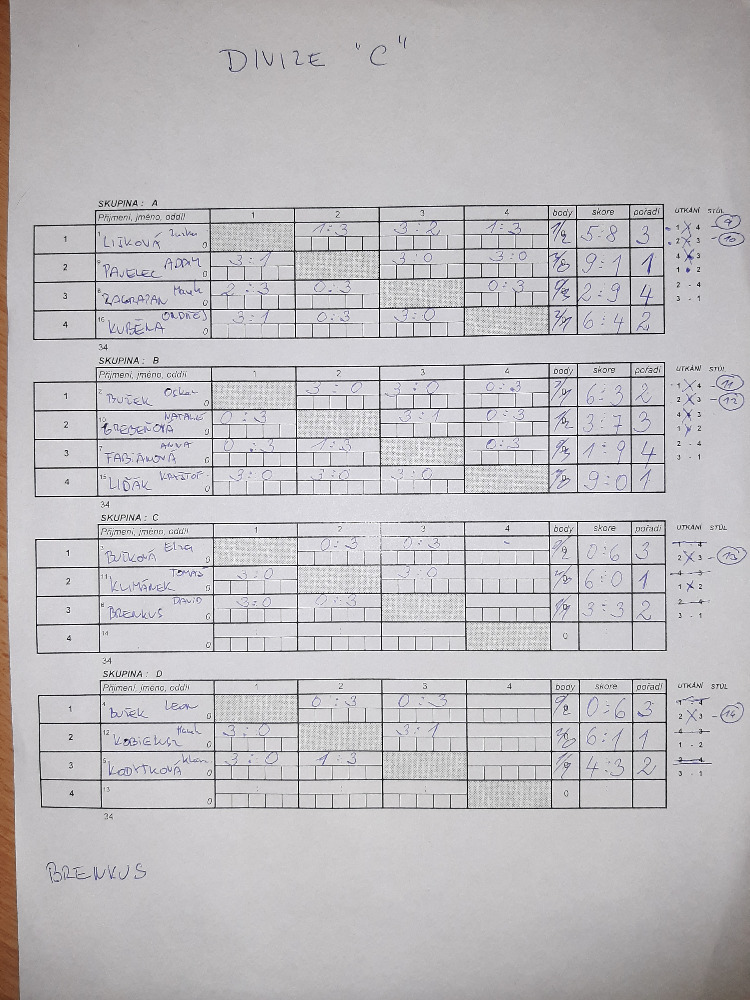 DIVIZE "C"
SKUPINA : A
Příjmení, jméno, oddíl 1 2 3 4 body skore pořadí UTKÁNÍ STŮL
1 LIŤKOVÁ 0 1:3 3:2 1:3 5:8 3 1 4 - 9
2 PAVELEC ADAM 0 3:1 3:0 3:0 9:1 1 2 3 - 10
3 ZAGRAPAN 0 2:3 0:3 0:3 2:9 4 4 3
4 16 KUBĚNA ONDŘEJ 0 3:1 0:3 3:0 6:4 2 1 2
2 - 4
3 - 1
34
SKUPINA : B
Příjmení, jméno, oddíl 1 2 3 4 body skore pořadí UTKÁNÍ STŮL
1 BUŤEK Oskar 0 3:0 3:0 0:3 6:3 2 1 4 - 11
2 10 GREBEŇOVÁ NATALIE 0 0:3 3:1 0:3 3:7 3 2 3 - 12
3 7 FABIÁNOVÁ ANNA 0 0:3 1:3 0:3 1:9 4 4 3
4 15 LIĎÁK KRYŠTOF 0 3:0 3:0 3:0 9:0 1 1 2
2 - 4
3 - 1
34
SKUPINA : C
Příjmení, jméno, oddíl 1 2 3 4 body skore pořadí UTKÁNÍ STŮL
1 3 BUŤKOVÁ 0 0:3 0:3 - 0:6 3 1 - 4
2 11 KLIMÁNEK TOMÁŠ 0 3:0 3:0 6:0 1 2 3 - 13
3 BRENKUS DAVID 0 3:0 0:3 3:3 2 4 - 3
4 14 0 0 1 2
2 - 4
3 - 1
34
SKUPINA : D
Příjmení, jméno, oddíl 1 2 3 4 body skore pořadí UTKÁNÍ STŮL
1 4 BUŤEK Leon 0 0:3 0:3 0:6 3 1 - 4
2 12 KOBIELUSZ 0 3:0 3:1 6:1 1 2 3 - 14
3 5 KODYTKOVÁ 0 3:0 1:3 4:3 2 4 - 3
4 13 0 0 1 - 2
2 - 4
3 - 1
34
BRENKUS